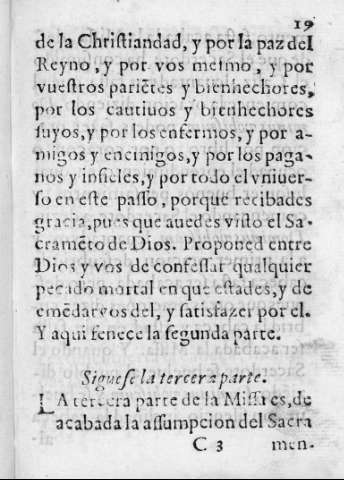 19
de la Christiandad, y por la paz del
Reyno, y por vos mesmo, y por
vuestros pariẽtes y bienhechores,
por los cautiuos y bienhechores
suyos, y por los enfermos, y por a-
migos y enemigos, y por los paga-
nos y infieles, y por todo el vniuer-
so en este passo, porque recibades
gracia, pues que auedes visto el Sa-
cramẽto de Dios. Proponed entre
Dios y vos de confessar qualquier
pecado mortal en que estades, y de
emẽdaros del, y satisfazer por el.
Y aqui fenece la segunda parte.
Siguese la tercera parte.
LA tercera parte de la Missa es, de
acabada la assumpcion del Sacra
C 3 men-